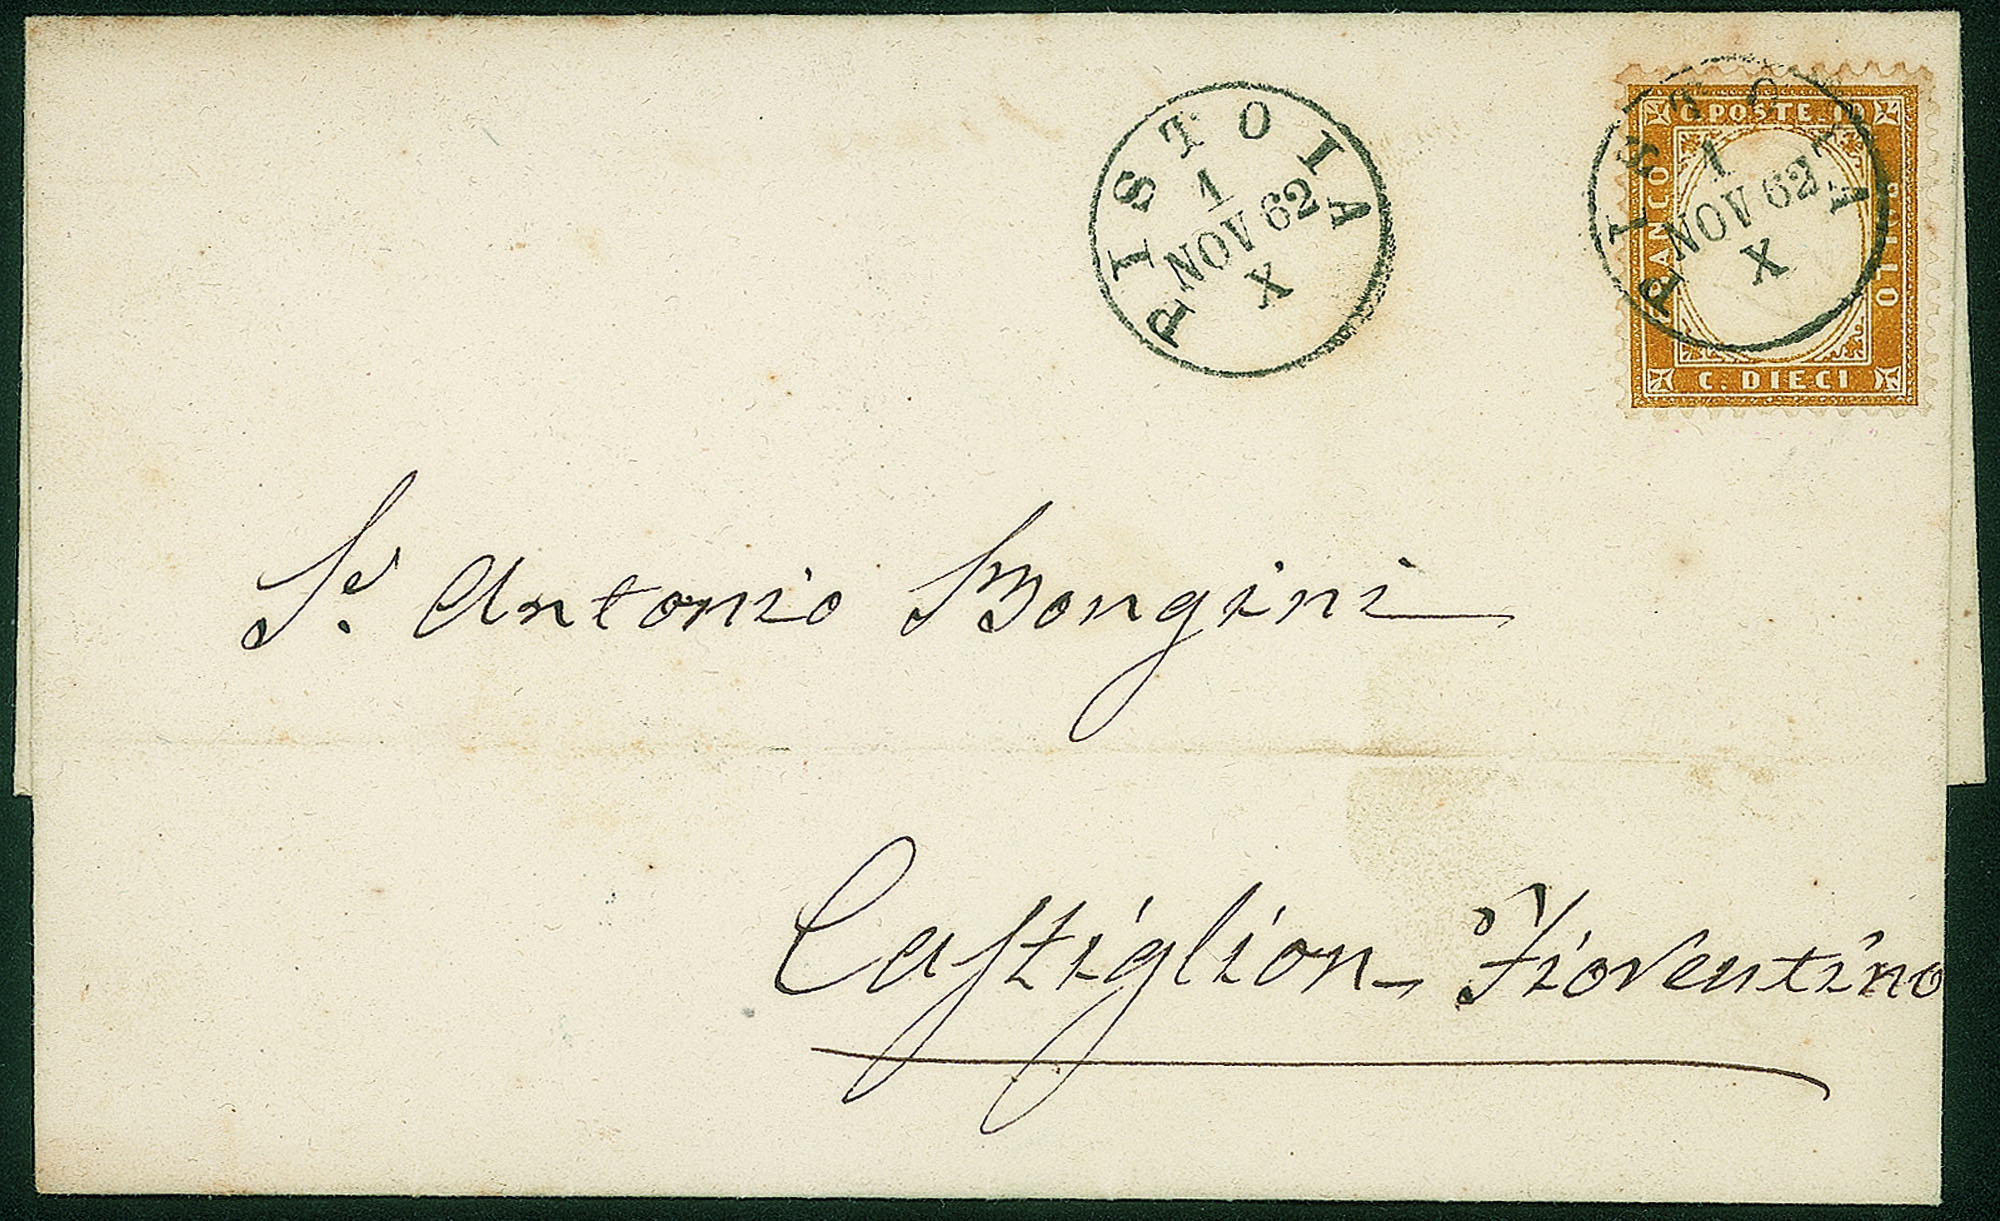 PISTOIA
1
NOV 62
X
C. POSTE. 10
FRANCO
BOLLO
C. DIECI
PISTOIA
1
NOV 62
X
Sr. Antonio Bongini
Castiglion- Fiorentino